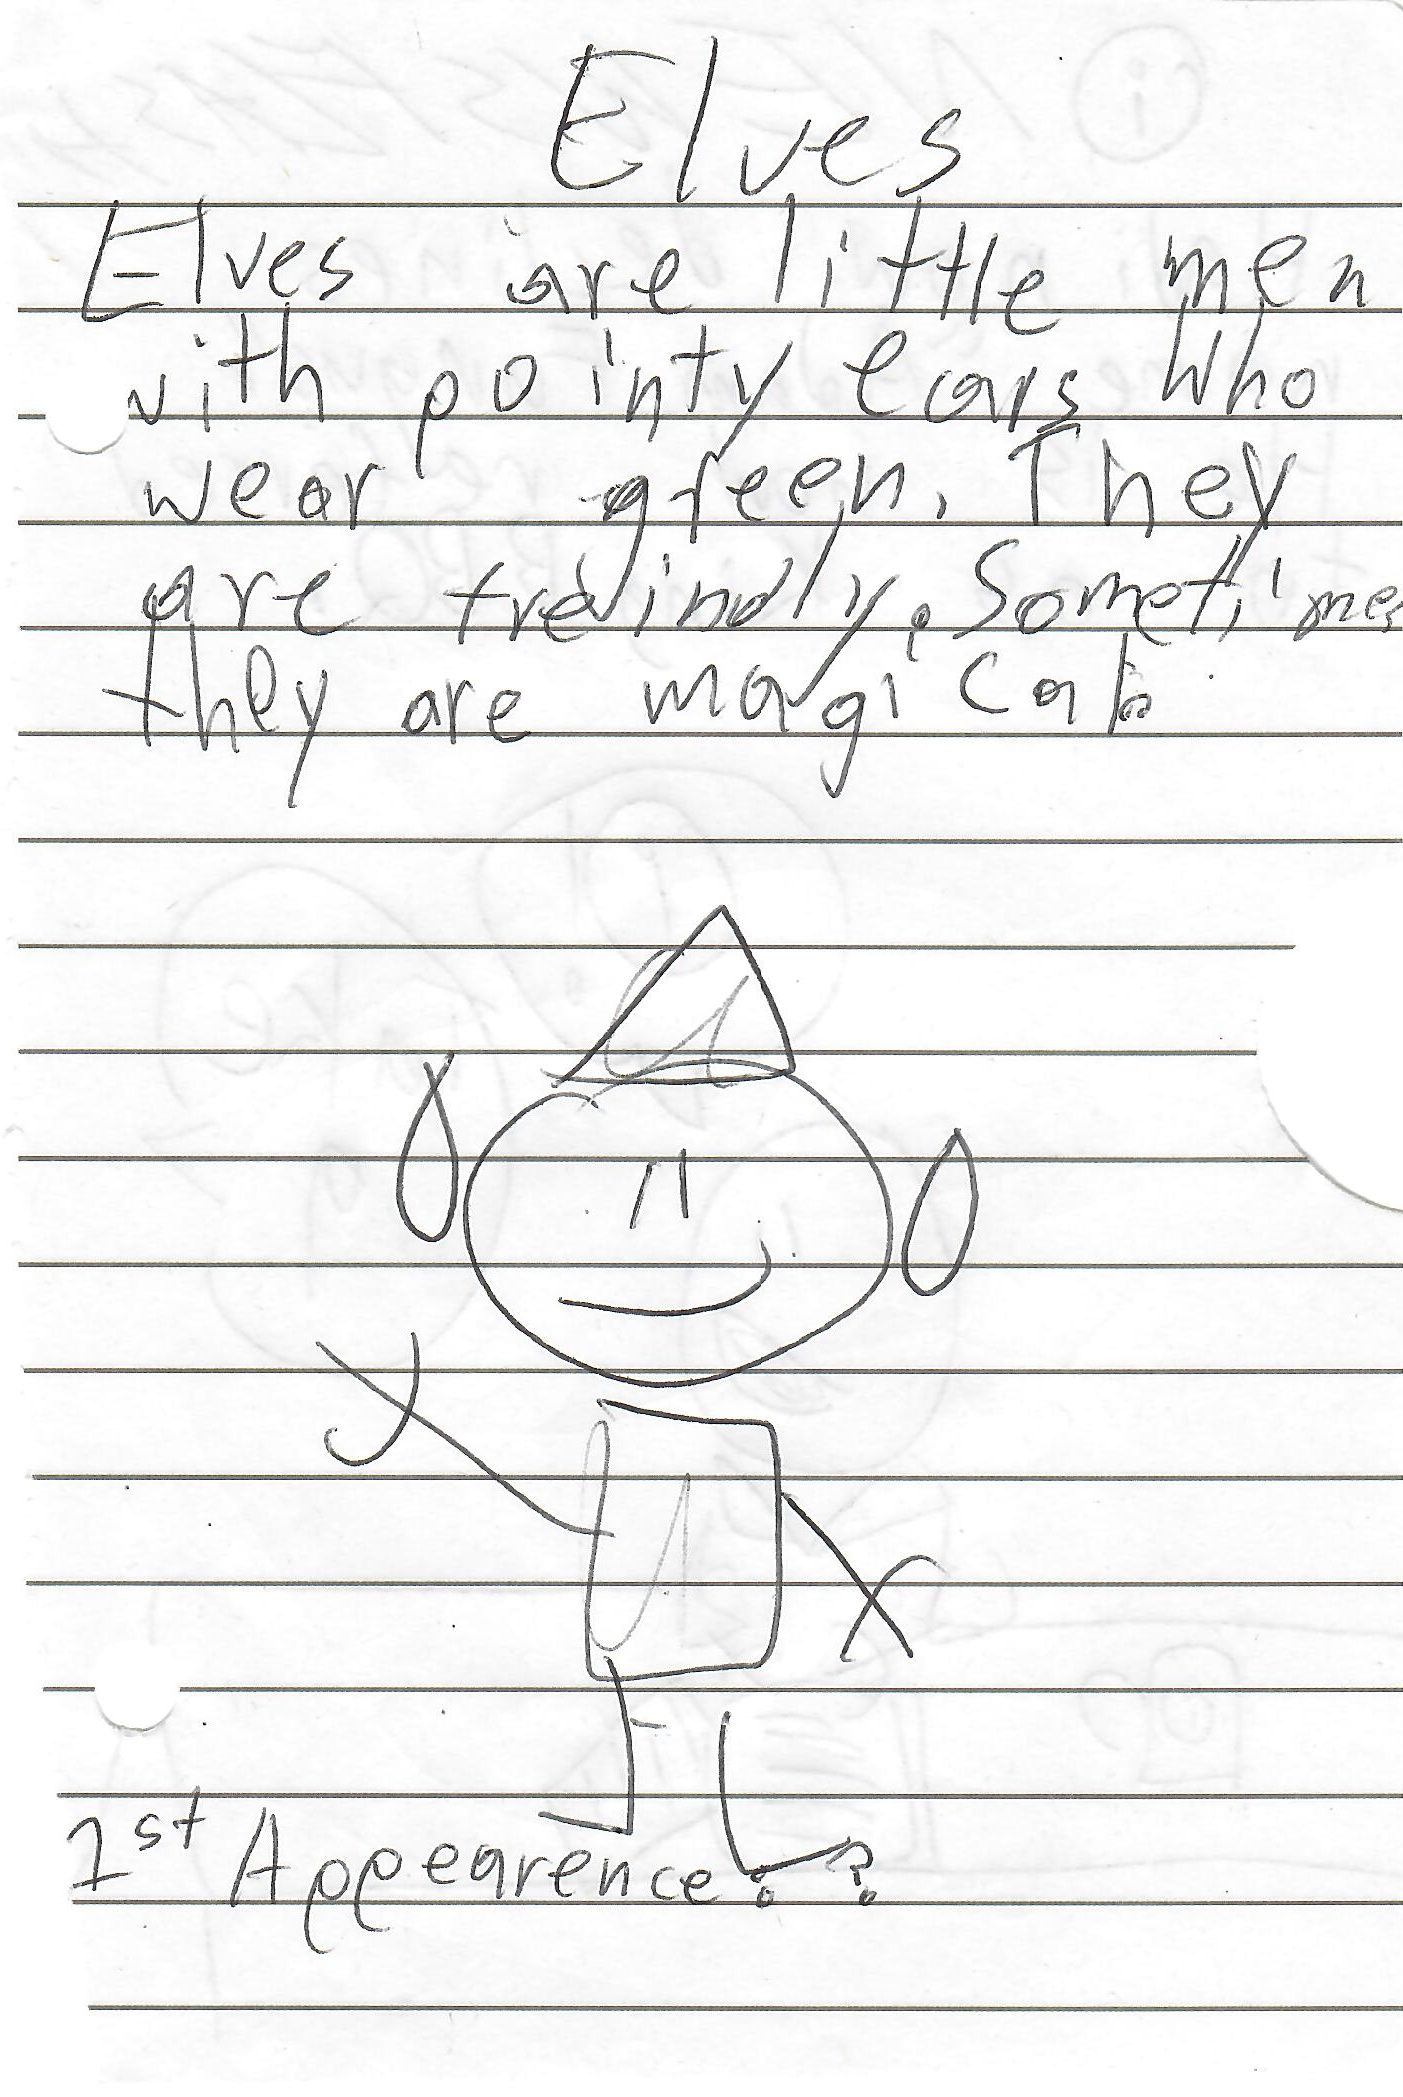 Elves
Elves are little men
with pointy ears who
wear green. They
are freindly. Sometimes
they are magical.
1st Appearence: ?